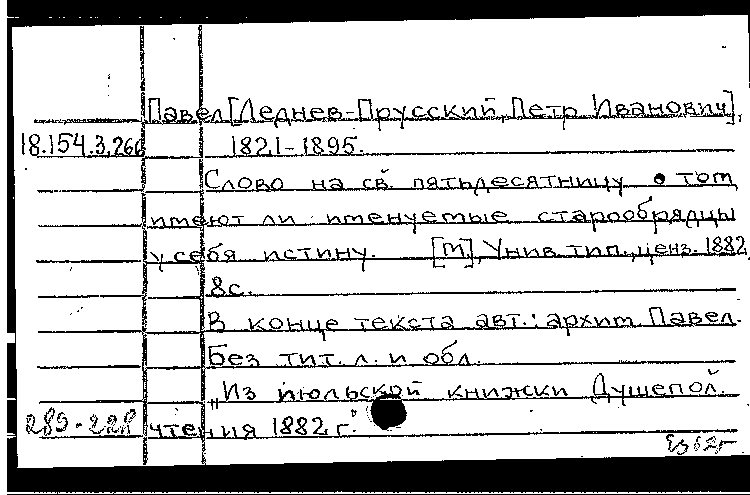 Павел [Леднев-Прусский, Петр Иванович],
18.154.3.266 1821-1895.
Слово на св. пятьдесятницу о том,
имеют ли именуемые старообрядцы
у себя истину. [М], Унив. тип., ценз. 1882
8с.
В конце текста авт.: архим. Павел.
Без тит. л. и обл.
„Из июльской книжки Душепол.
289-228 чтения 1882 г."